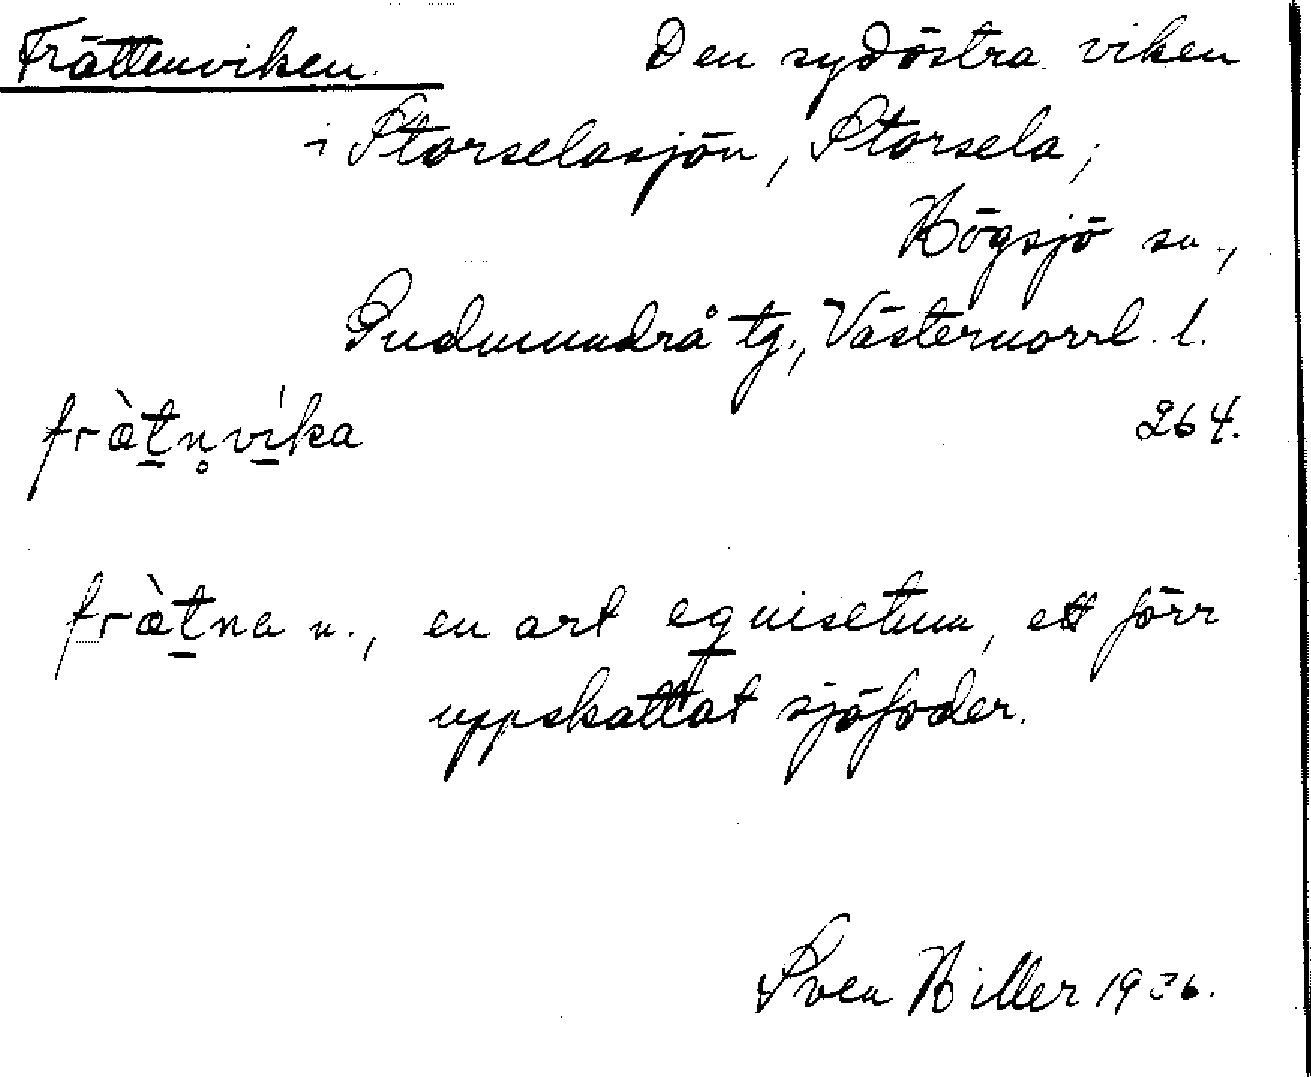 Frättenviken. Den sydöstra viken
i Storselasjön, Storsela,
Högsjö sn.,
Gudmundrå tg., Västernorrl. l.
fràt̲n̥ví̲ka 264.
fràt̲na n., en art equisetum, ett förr
uppskattat sjöfoder.
Sven Hiller 1936.